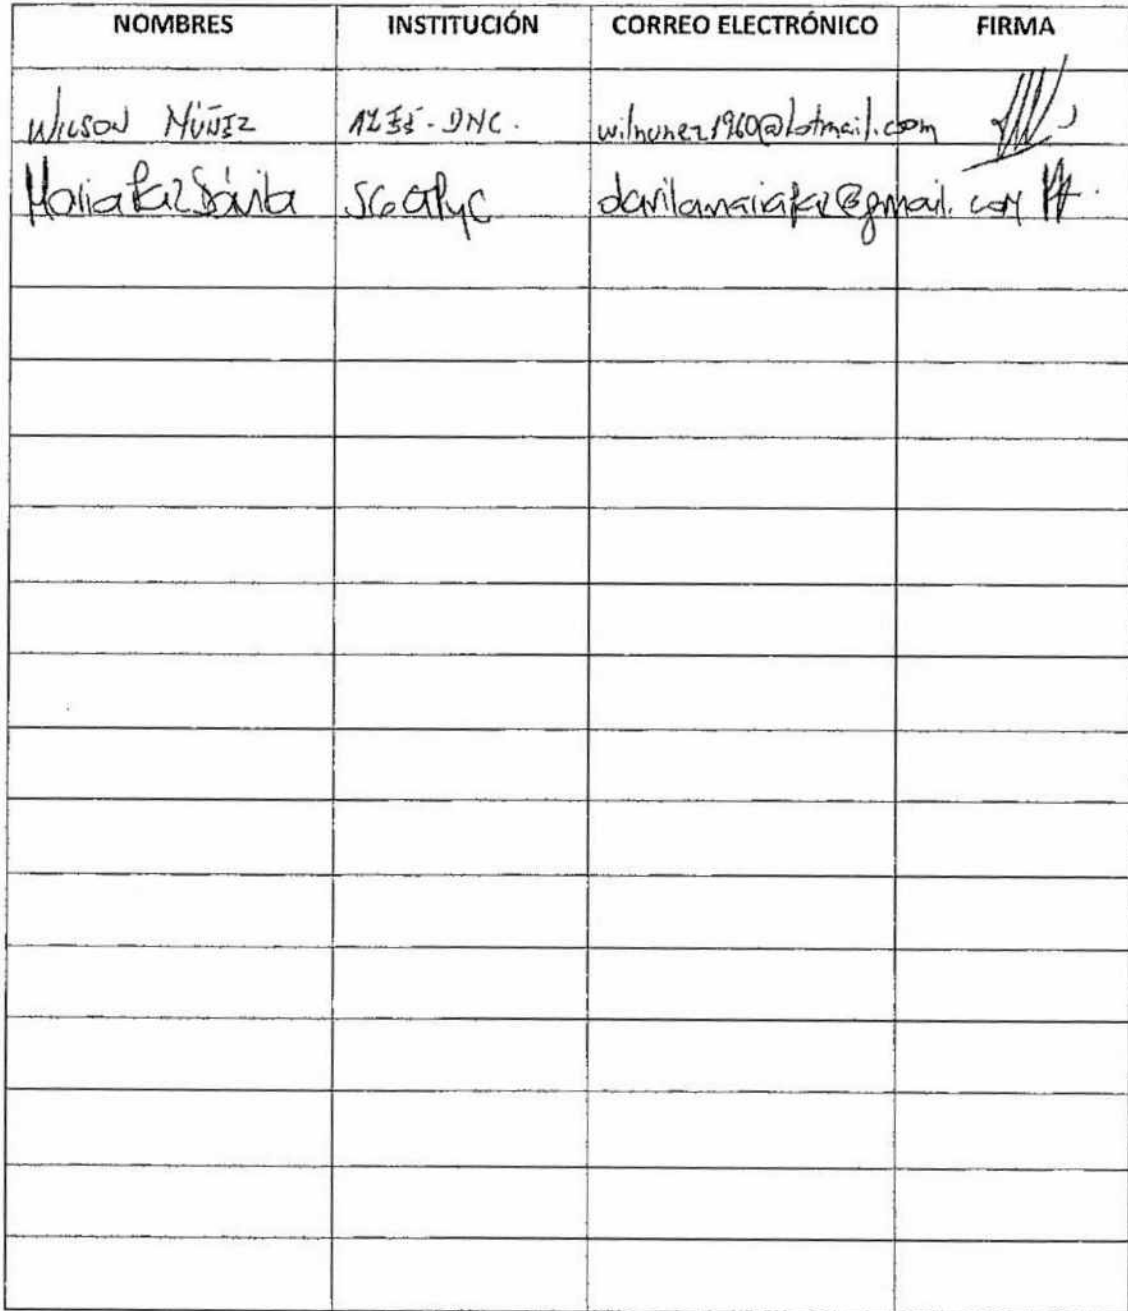 NOMBRES INSTITUCIÓN CORREO ELECTRÓNICO FIRMA
WILSON NÚÑEZ AZEE-DNC. wilnunez1960@hotmail.com
María Paz Dávila SGCTPyC davilamariapaz@gmail.com